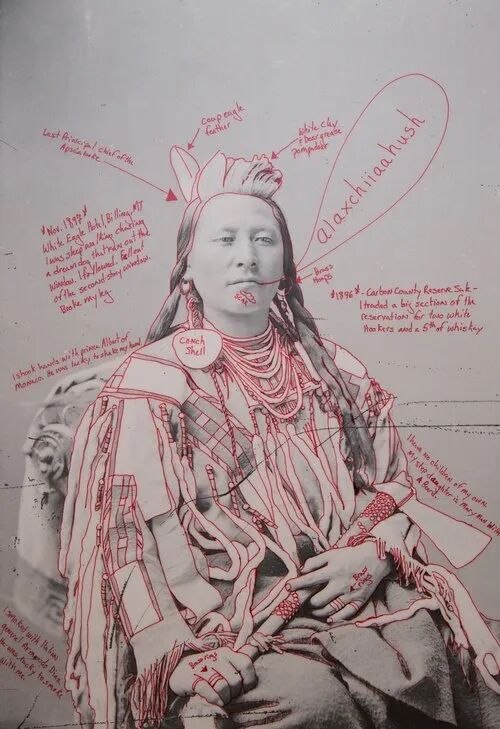 Coup eagle
feather
White clay
+ bear grease
pompadour
Last Principal chief of the
Apsáalooke
alaxchiiaahush
*Nov. 1897*
White Eagle Hotel, Billings, MT
I was sleep walking chasing
a dream dog that ran out the
window. I followed. Fell out
of the second story window.
Broke my leg
Brass
Hoops
*1896*- Carbon County Reserve Sale-
I traded a big section of the
reservation for two white
Hookers and a 5th of whiskey
Conch
Shell
I shook hands with prince Albert of
Monaco. He was lucky to shake my hand
I have no children of my own
my step daughter is Mary
Brass
rings
Brass rings
I smoked with Italian
general Armando Diaz
He was lucky to smoke
with me